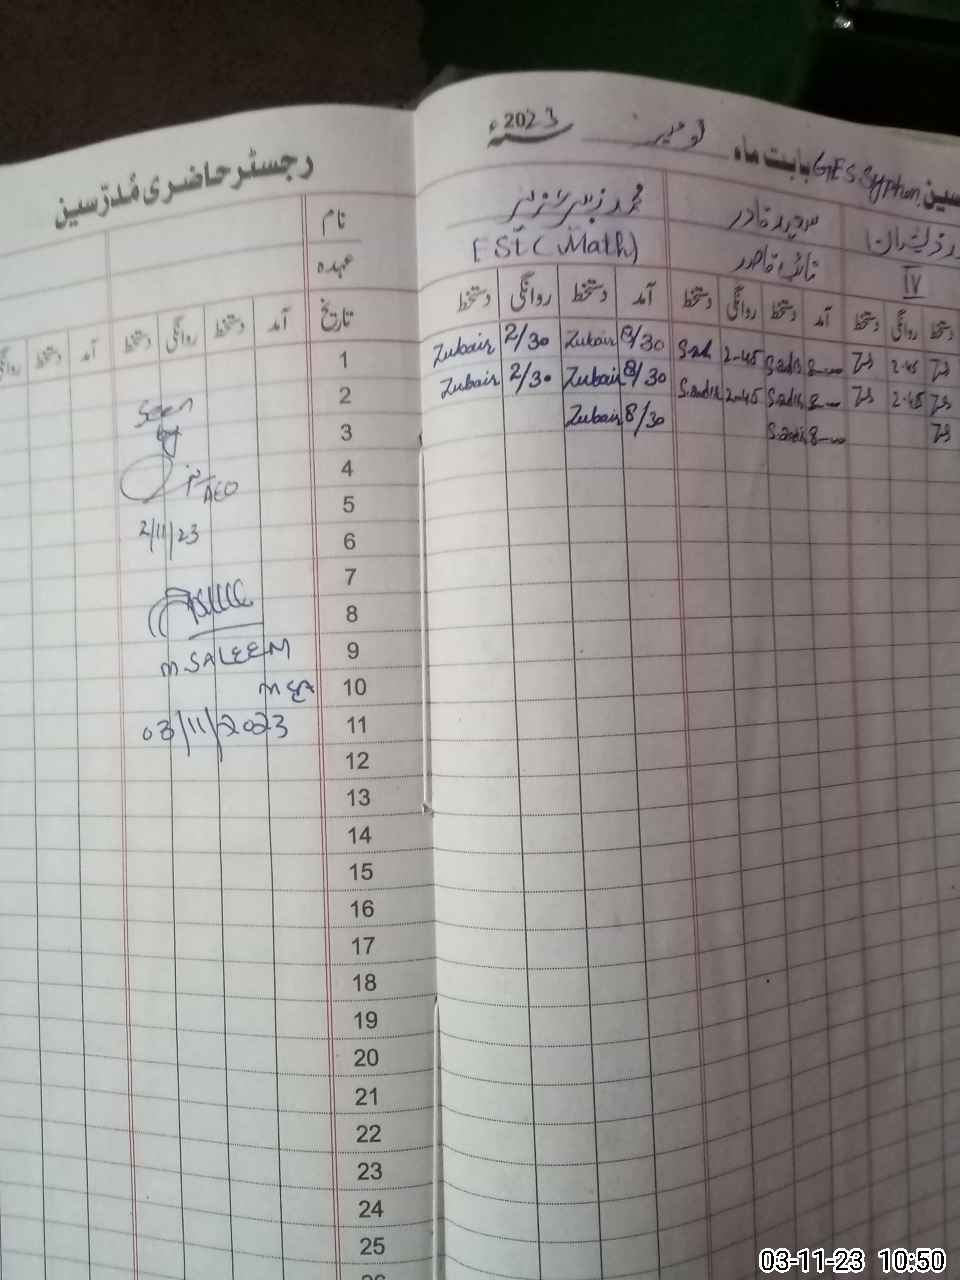 رجسٹر حاضری مُدرّسین
سین GES Syphon بابت ماہ نومبر سنہ 2023ء
نام
محمد زبیر
عہدہ
EST (Math)
نائب قاصد
IV
تاریخ
آمد دستخط روانگی دستخط آمد دستخط
دستخط روانگی دستخط آمد دستخط روانگی دستخط آمد دستخط روانگی دستخط
1 Zubair 2/30 Zubair 8/30 2-45 8-00 2-45
2 Zubair 2/30 Zubair 8/30 2-45 8-00 2-45
3 Zubair 8/30 8-00
4
5
6
7
8
9
10
11
12
13
14
15
16
17
18
19
20
21
22
23
24
25
26
Seen
by
AEO
2/11/23
M. SALEEM
MEA
03/11/2023
03-11-23 10:50